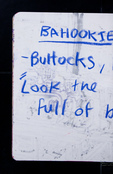 BAHOOKIE
- Buttocks,
"Look the
full of